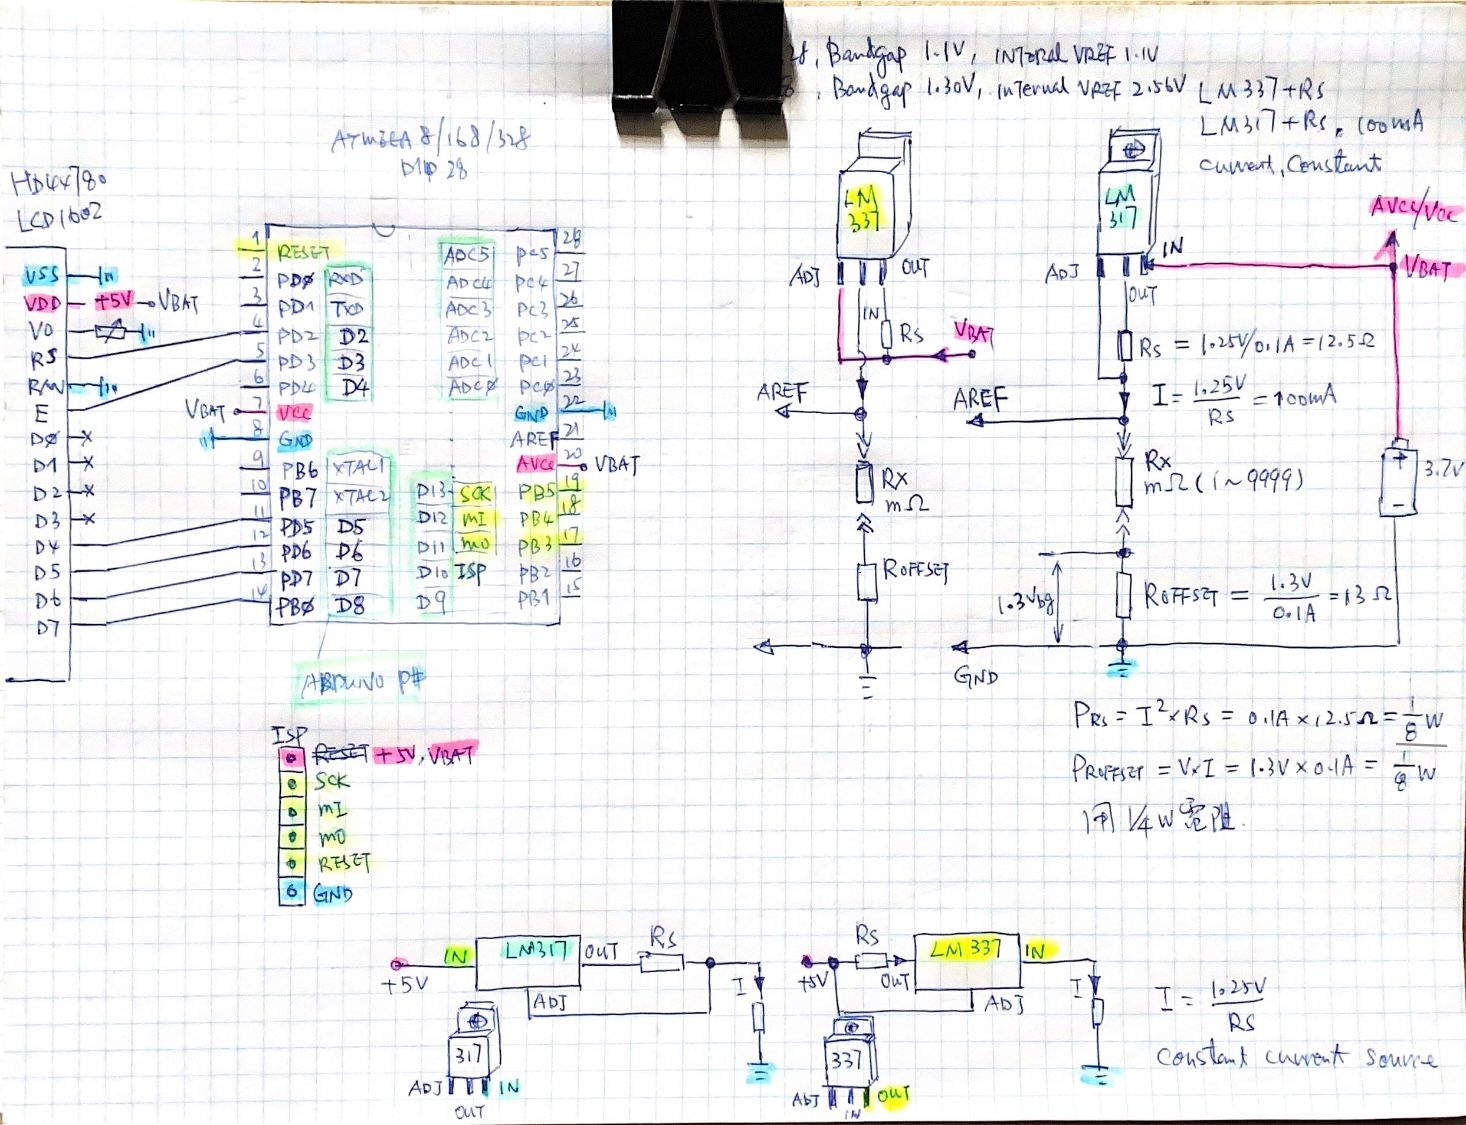 , Bandgap 1.1V, INTERNAL VREF 1.1V
, Bandgap 1.30V, internal VREF 2.56V
LM337+RS
LM317+RS, 100mA
current, Constant
ATMEGA 8/168/328
DIP 28
HD44780
LCD1602
VSS
VDD +5V VBAT
V0
RS
R/W
E
D0
D1
D2
D3
D4
D5
D6
D7
1 RESET
2 PD0 RXD
3 PD1 TXD
4 PD2 D2
5 PD3 D3
6 PD4 D4
VBAT 7 VCC
8 GND
9 PB6 XTAL1
10 PB7 XTAL2
11 PD5 D5
12 PD6 D6
13 PD7 D7
14 PB0 D8
ADC5 PC5 28
ADC4 PC4 27
ADC3 PC3 26
ADC2 PC2 25
ADC1 PC1 24
ADC0 PC0 23
GND 22
AREF 21
AVCC 20 VBAT
D13 SCK PB5 19
D12 MI PB4 18
D11 MO PB3 17
D10 ISP PB2 16
D9 PB1 15
ARDUINO P#
LM
337
ADJ
OUT
IN
RS
VBAT
AREF
RX
mΩ
ROFFSET
LM
317
IN
ADJ
OUT
AVCC/VCC
VBAT
RS = 1.25V/0.1A = 12.5Ω
I = 1.25V/RS = 100mA
AREF
RX
mΩ (1~9999)
3.7V
+
-
1.3Vbg
ROFFSET = 1.3V/0.1A = 13Ω
GND
PRS = I²×RS = 0.1A×12.5Ω = 1/8W
PROFFSET = V×I = 1.3V×0.1A = 1/8W
用 1/4W 電阻
ISP
RESET +5V, VBAT
SCK
MI
MO
RESET
GND
+5V
IN
LM317
OUT
RS
ADJ
I
317
ADJ
OUT
IN
+5V
RS
OUT
LM337
IN
ADJ
I
337
ADJ
IN
OUT
I = 1.25V/RS
constant current source